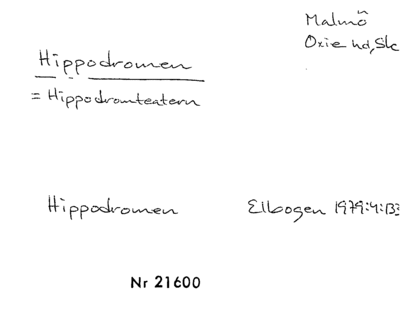 Malmö
Oxie hd, Sk
Hippodromen
= Hippodromteatern
Hippodromen Elbogen 1979:4:133
Nr 21600